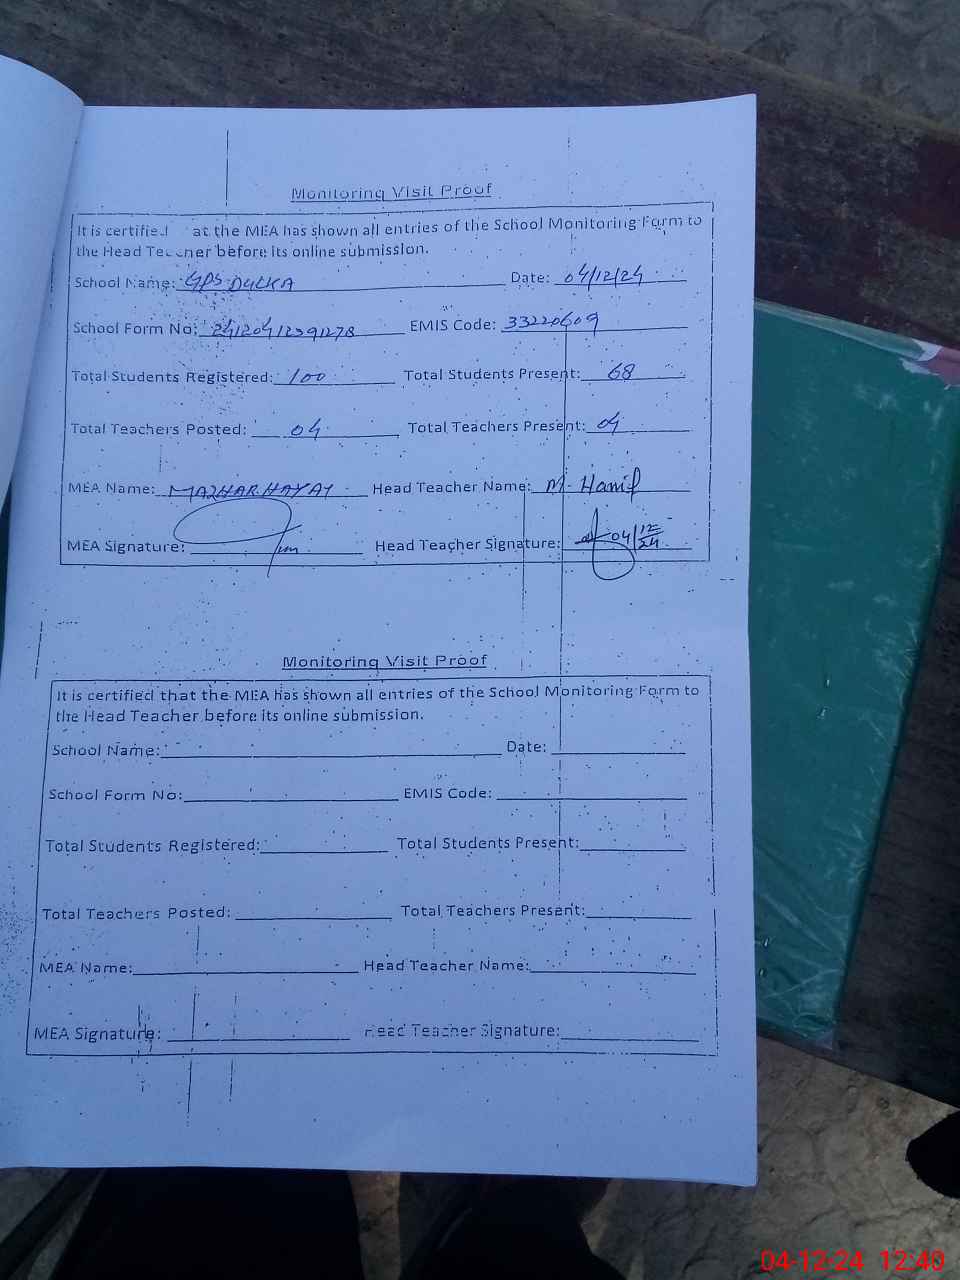 Monitoring Visit Proof
It is certified at the MEA has shown all entries of the School Monitoring Form to
the Head Teacher before its online submission.
School Name: GPS DULKA Date: 04/12/24
School Form No: EMIS Code: 33220609
Total Students Registered: 100 Total Students Present: 68
Total Teachers Posted: 04 Total Teachers Present: 04
MEA Name: MAZHAR HAYAT Head Teacher Name: M. Hanif
MEA Signature: Head Teacher Signature: 04/12/24
Monitoring Visit Proof
It is certified that the MEA has shown all entries of the School Monitoring Form to
the Head Teacher before its online submission.
School Name: Date:
School Form No: EMIS Code:
Total Students Registered: Total Students Present:
Total Teachers Posted: Total Teachers Present:
MEA Name: Head Teacher Name:
MEA Signature: Head Teacher Signature:
04-12-24 12:40